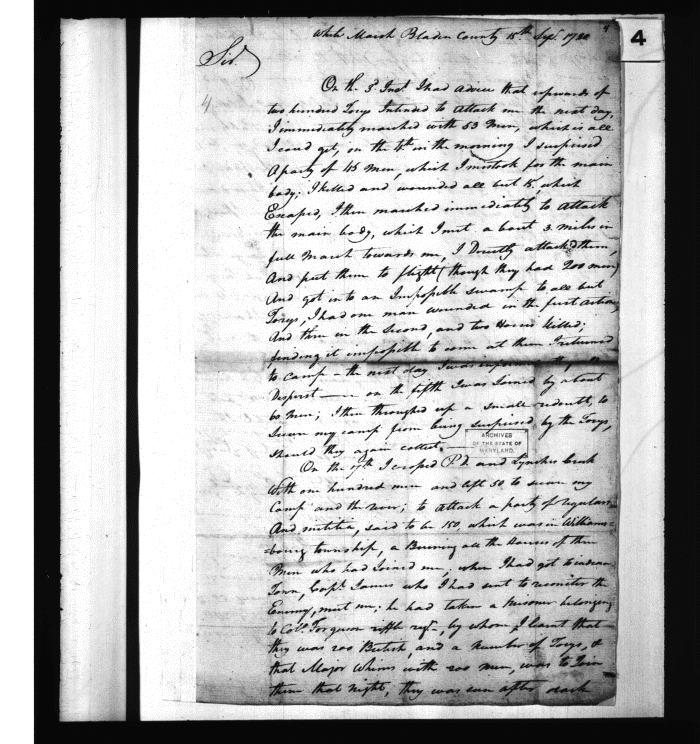 White Marsh Bladen County 15th Sepr. 1780
4
4
Sir.
4
On the 3d. Inst. I had advice that upwards of
two hundred Torys Intended to attack me the next day,
I immediately marched with 53 Men, which is all
I could get, on the 4th in the morning I surprised
A party of 45 Men, which I mistook for the main
body; I killed and wounded all but 15, which
Escaped, I then marched immediately to attack
the main body, which I met about 3 miles in
full March towards me, I Directly attacked them,
And put them to flight (though they had 200 men)
And got into an Impossible swamp to all but
Torys, I had one man wounded in the first action,
And three in the second, and two Horses killed;
finding it impossible to come at them I returned
to camp - the next day I was
Disperst — on the fifth I was Joined by about
60 Men; I then throughed up a small redoubt, to
secure my camp from being surprised by the Torys,
should they again collect.
ARCHIVES
OF THE STATE OF
MARYLAND.
On the 7th I crosed P.D. and Lynches Creek
With one hundred men and left 50 to secure my
Camp and the river; to attack a party of regulars
And militia, said to be 150, which was in Williams=
=bourg township, a Burning all the Houses of those
Men who had Joined me; when I had got to indian
Town, Capt. James who I had sent to reconiter the
Enemy, meet me, he had taken a Prisoner belonging
to Col. Ferguson riffle regt., by whom I learnt that
they was 200 British and a Number of Torys, &
that Major Whims with 200 men, was to Join
them that night, they was seen after dark